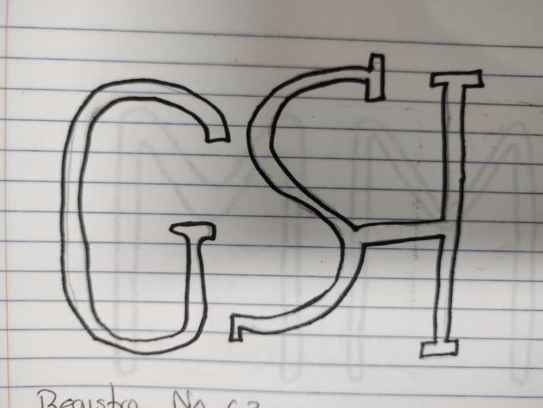 GSH
Registro No